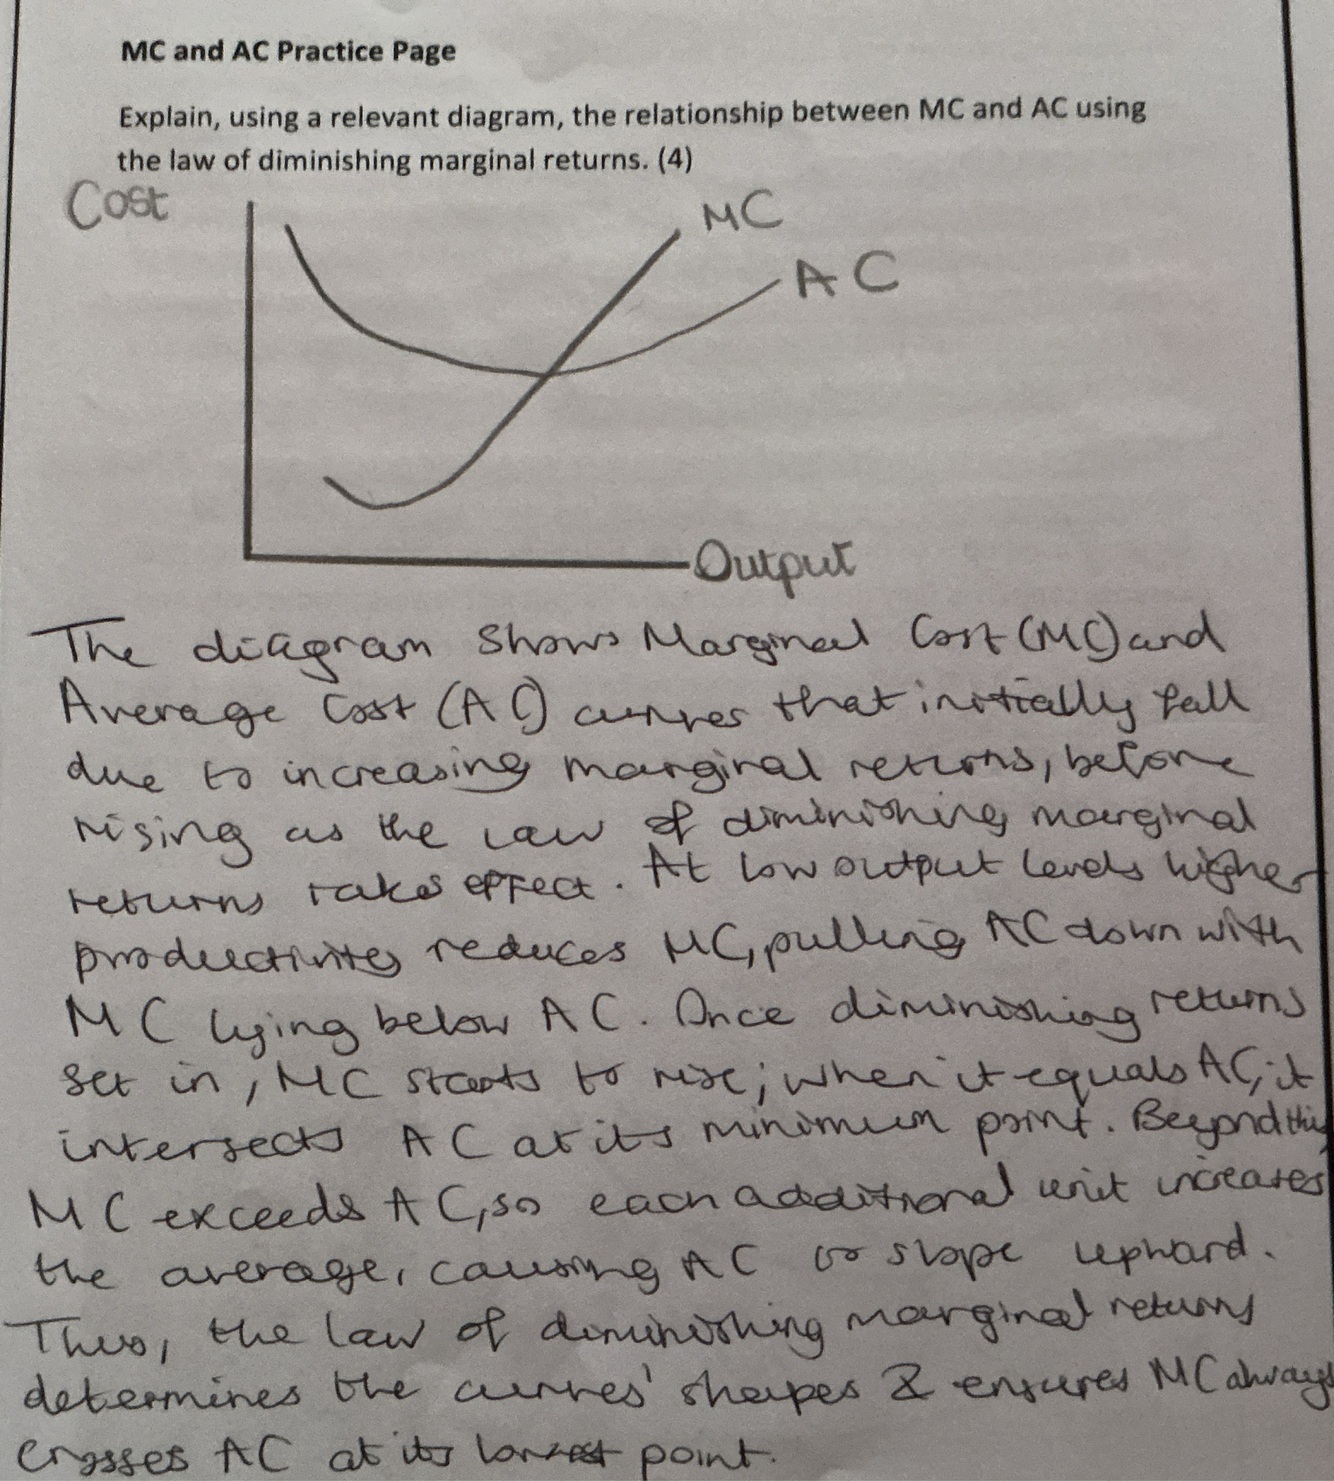 MC and AC Practice Page
Explain, using a relevant diagram, the relationship between MC and AC using
the law of diminishing marginal returns. (4)
Cost
MC
AC
Output
The diagram shows Marginal Cost (MC) and
Average Cost (AC) curves that initially fall
due to increasing marginal returns, before
rising as the law of diminishing marginal
returns takes effect. At low output levels higher
productivity reduces MC, pulling AC down with
MC lying below AC. Once diminishing returns
set in, MC starts to rise; when it equals AC, it
intersects AC at its minimum point. Beyond this
MC exceeds AC, so each additional unit increases
the average, causing AC to slope upward.
Thus, the law of diminishing marginal returns
determines the curves' shapes & ensures MC always
crosses AC at its lowest point.